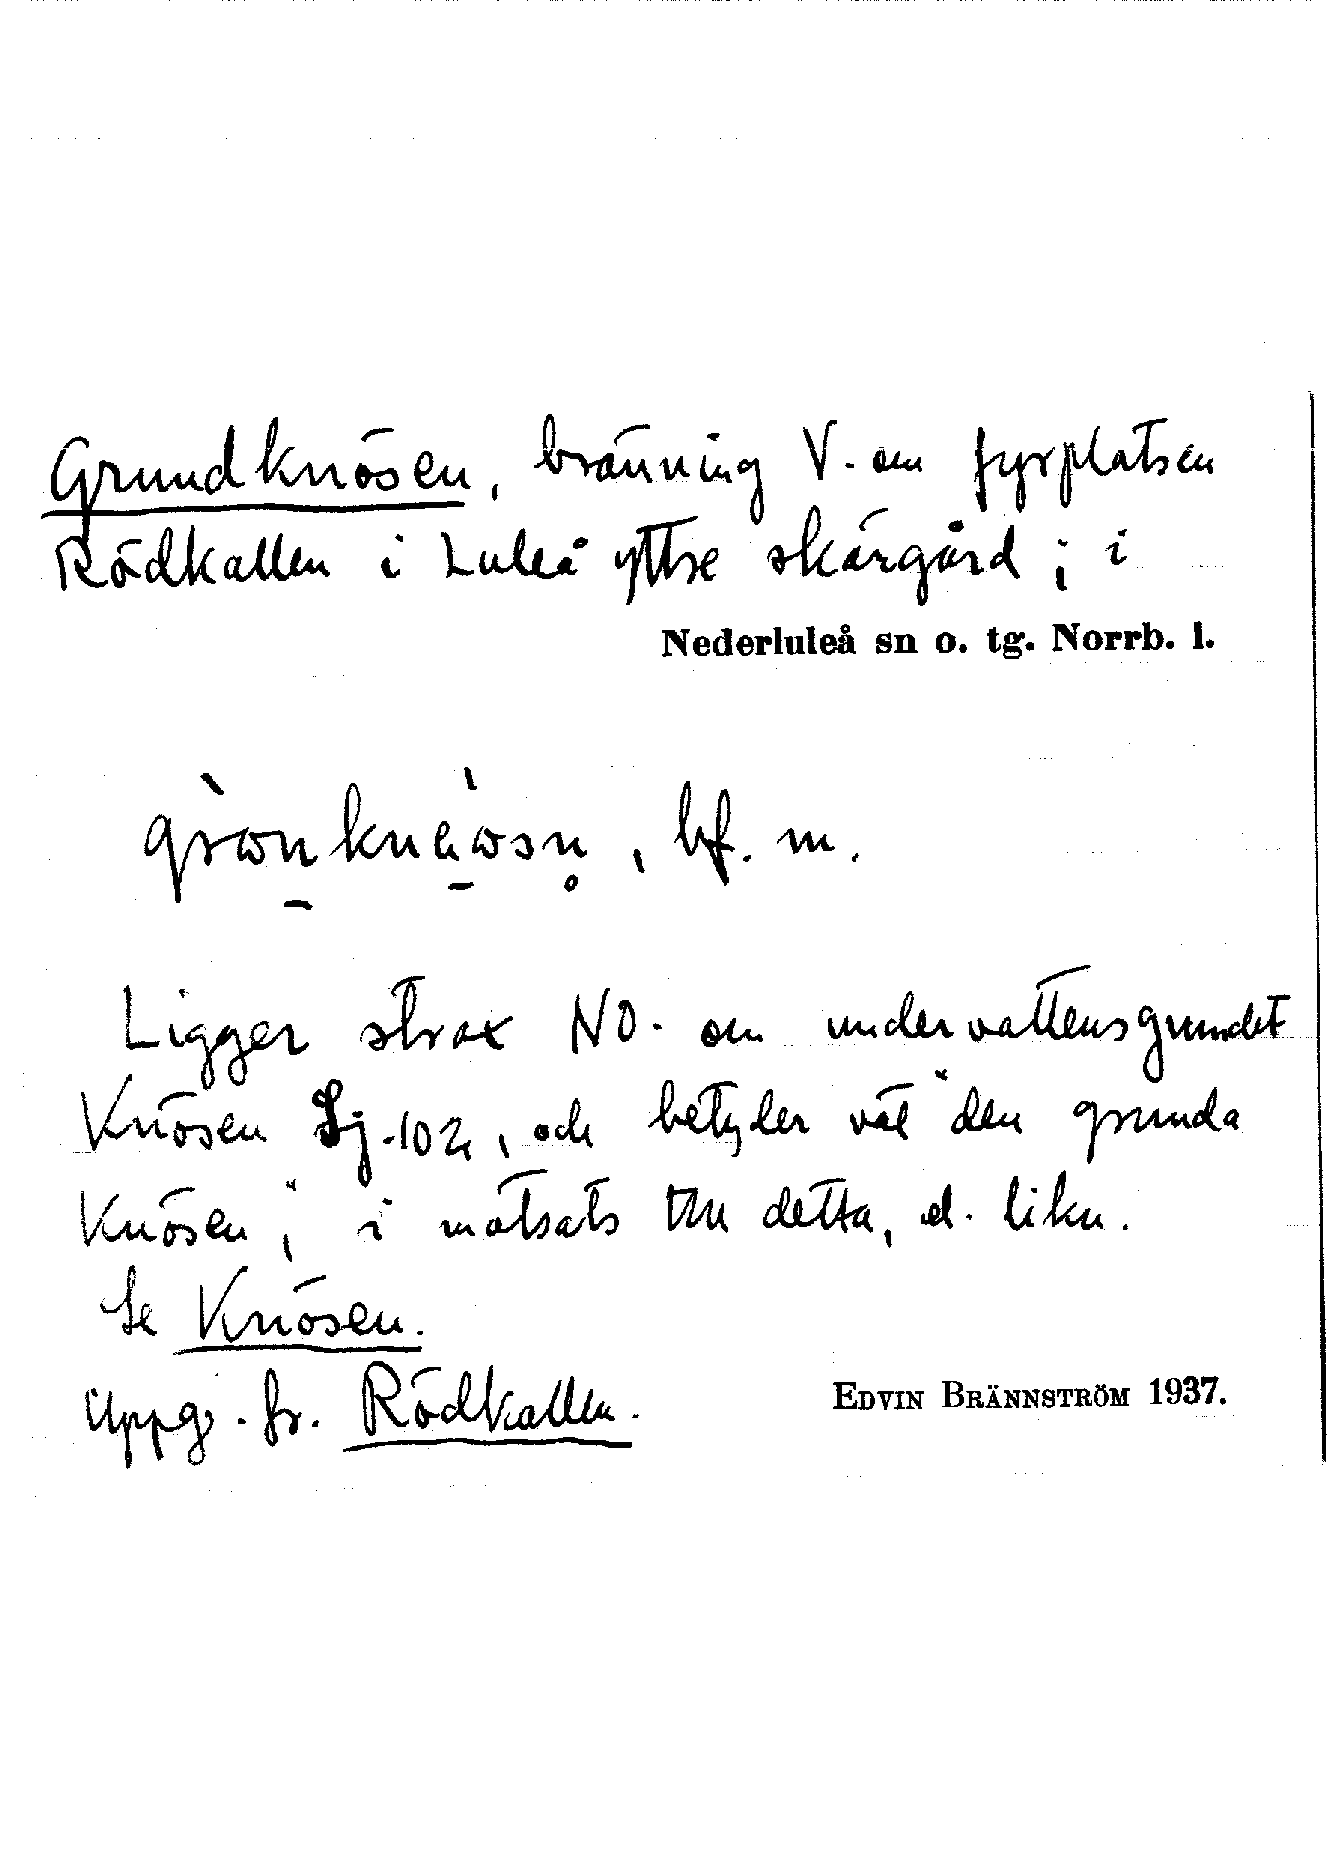 Grundknösen, bränning V. om fyrplatsen
Rödkallen i Luleå yttre skärgård; i
Nederluleå sn o. tg. Norrb. l.
, bf. m.
Ligger strax NO. om undervattensgrundet
Knösen Sj.-102, och betyder väl "den grunda
Knösen", i motsats till detta, d. liku.
Se Knösen.
Uppg. fr. Rödkallen.
EDVIN BRÄNNSTRÖM 1937.